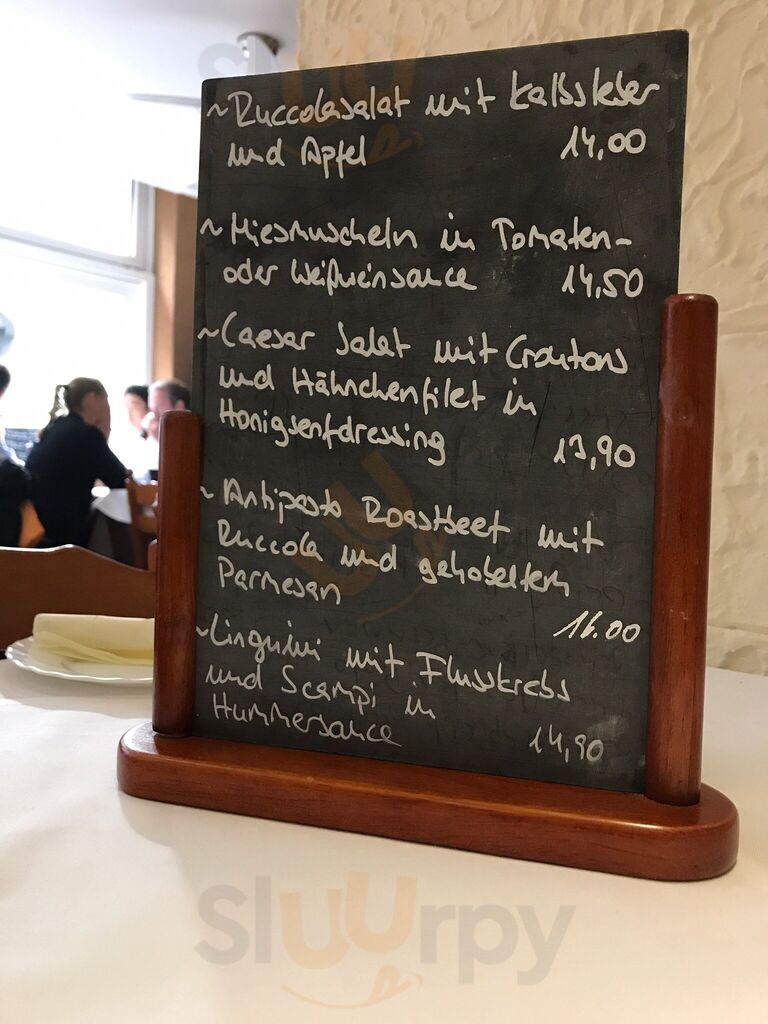 ~Ruccolasalat mit Kalbsleber
und Apfel 14,00
~Miesmuscheln in Tomaten-
oder Weißweinsauce 14,50
~Caesar Salat mit Croutons
und Hähnchenfilet in
Honigsenfdressing 13,90
~Antipasto Roastbeef mit
Ruccola und gehobeltem
Parmesan 16.00
~Linguini mit Flusskrebs
und Scampi in
Hummersauce 14,90
Sluurpy